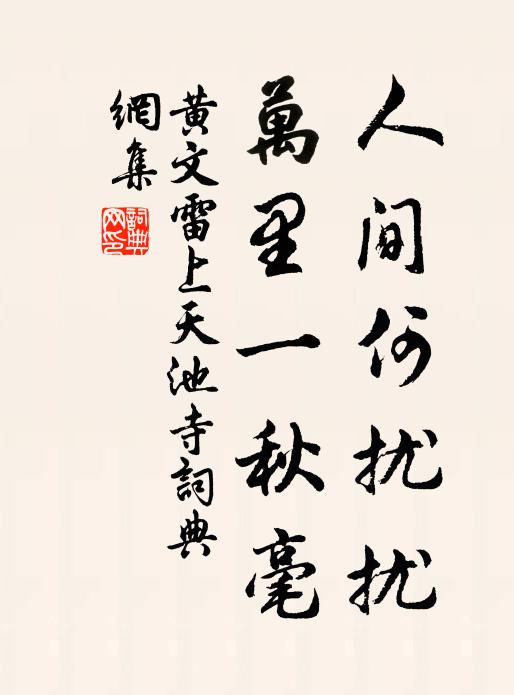 人间何扰扰
萬里一秋毫
黄文雷上天池寺詞典
網集
詞典
网印